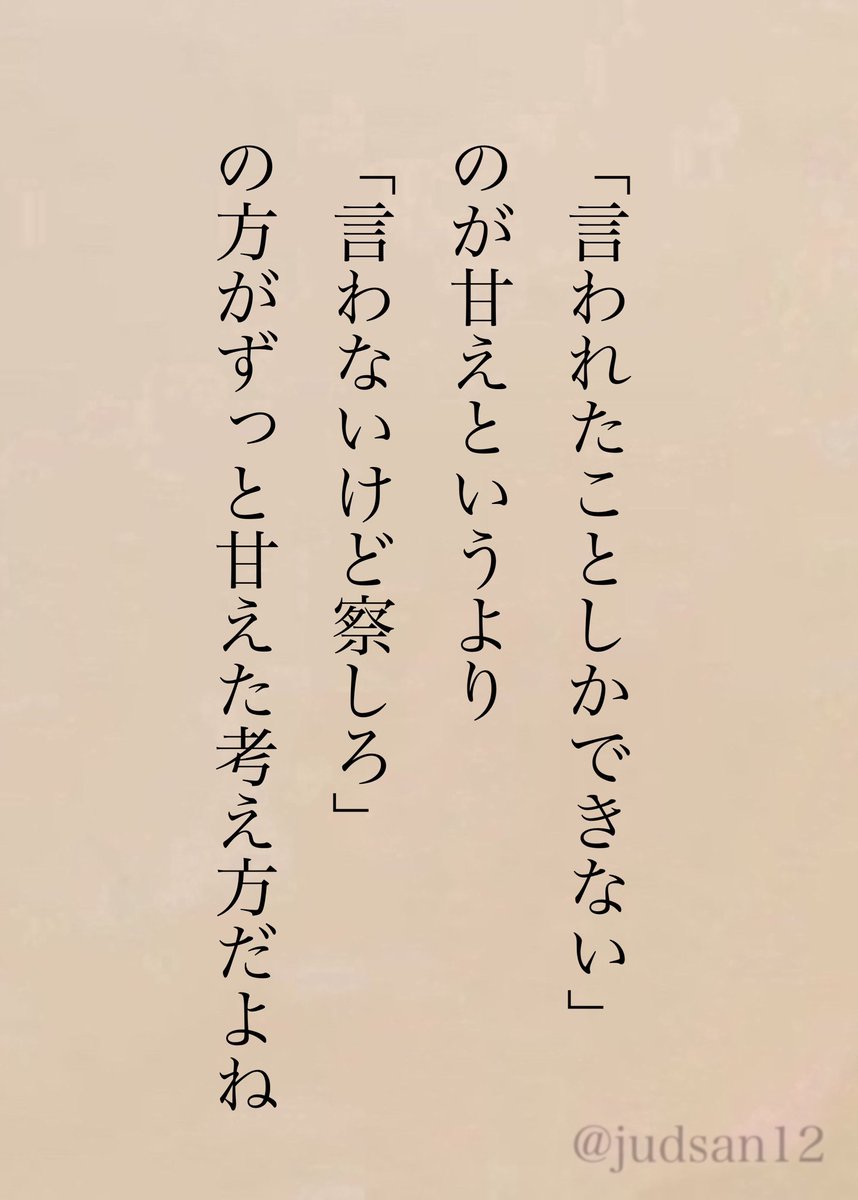 「言われたことしかできない」
のが甘えというより
「言わないけど察しろ」
の方がずっと甘えた考え方だよね
@judsan12